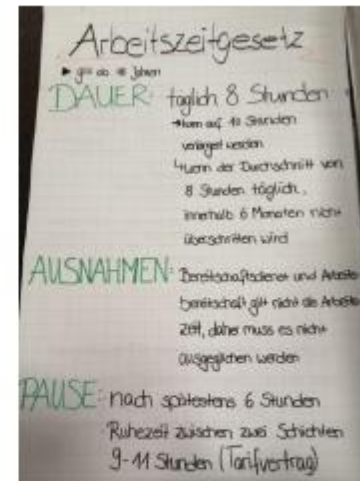 Arbeitszeitgesetz
► gilt ab Jahren
DAUER: täglich 8 Stunden
→ kann auf 10 Stunden
verlagert werden
↳ wenn der Durchschnitt von
8 Stunden täglich,
innerhalb 6 Monaten nicht
überschritten wird
AUSNAHMEN: Bereitschaftsdienst und Arbeits
bereitschaft gilt nicht als Arbeits
zeit, daher muss es nicht
ausgeglichen werden
PAUSE: nach spätestens 6 Stunden
Ruhezeit zwischen zwei Schichten
9-11 Stunden (Tarifvertrag)